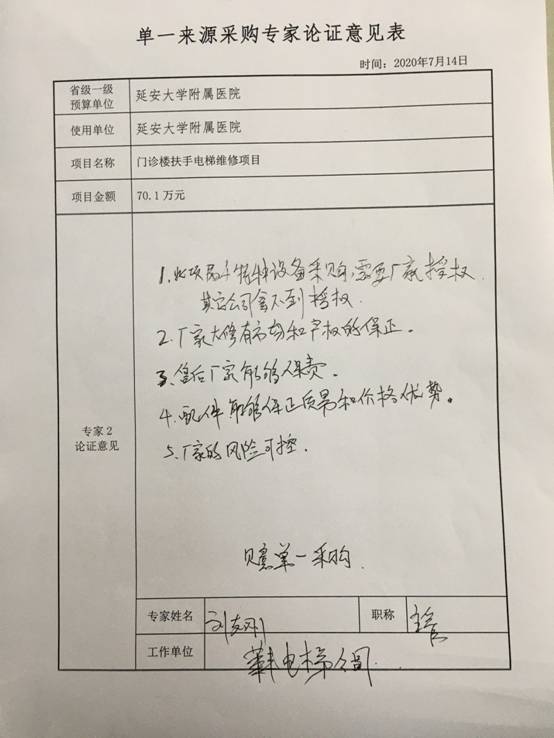 单一来源采购专家论证意见表
时间：2020年7月14日
省级一级
预算单位
延安大学附属医院
使用单位
延安大学附属医院
项目名称
门诊楼扶手电梯维修项目
项目金额
70.1万元
专家2
论证意见
1.此项属于特种设备采购,需要厂家授权
其它公司拿不到授权.
2.厂家大修有市场和产权的保证。
3.售后厂家能够保费。
4.配件能够保证质量和价格优势。
5.厂家的风险可控.
同意单一采购
专家姓名
刘
职称
工作单位
电梯公司.